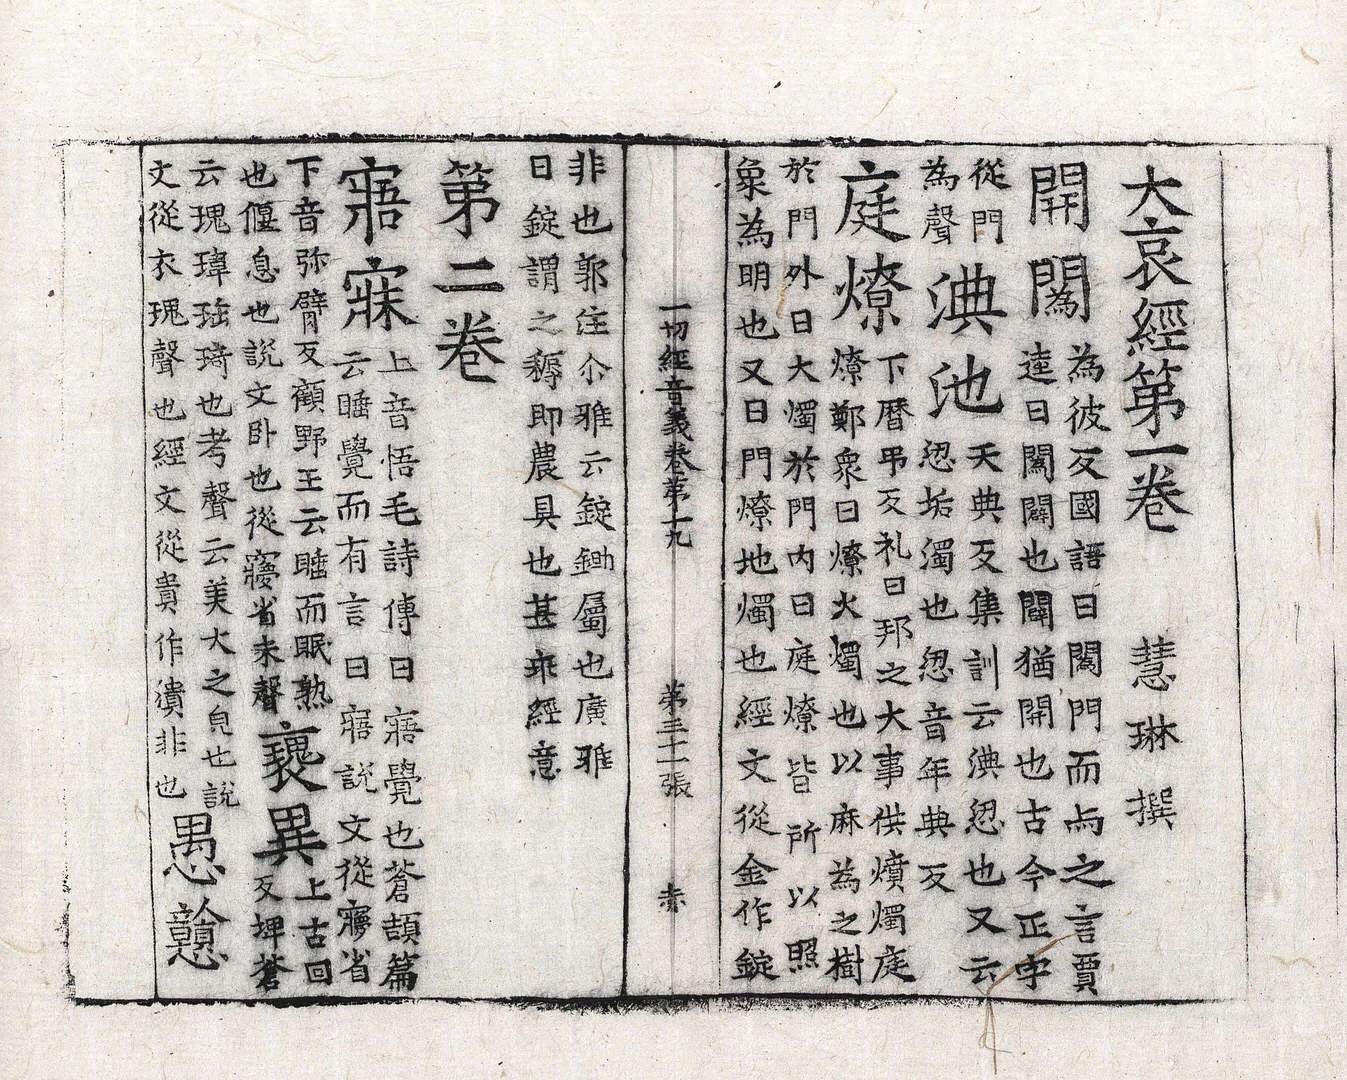 大哀經第一卷 慧琳撰
開闔 為彼反國語曰闔門而与之言賈
逵曰闔闢也闢猶開也古今正字
從門為聲 淟池 天典反集訓云淟涊也又云
涊垢濁也涊音年典反
庭燎 下曆弔反礼曰邦之大事供燌燭庭
燎鄭衆曰燎火燭也以麻為之樹
於門外曰大燭於門内曰庭燎皆所以照
衆為明也又曰門燎地燭也經文從金作錠
一切經音義卷第十九 第三十一張 赤
非也郭注尒雅云錠鋤屬也廣雅
曰錠謂之耨即農具也甚乖經意
第二卷
寤寐 上音悟毛詩傳曰寤覺也蒼頡篇
云睡覺而有言曰寤說文從㝱省
下音弥臂反顧野王云睡而眠熟
也偃息也說文卧也從㝱省未聲 褢異 上古回
反埤蒼
云瑰瑋珤琦也考聲云美大之皃也說
文從衣瑰聲也經文從貴作潰非也 愚戇